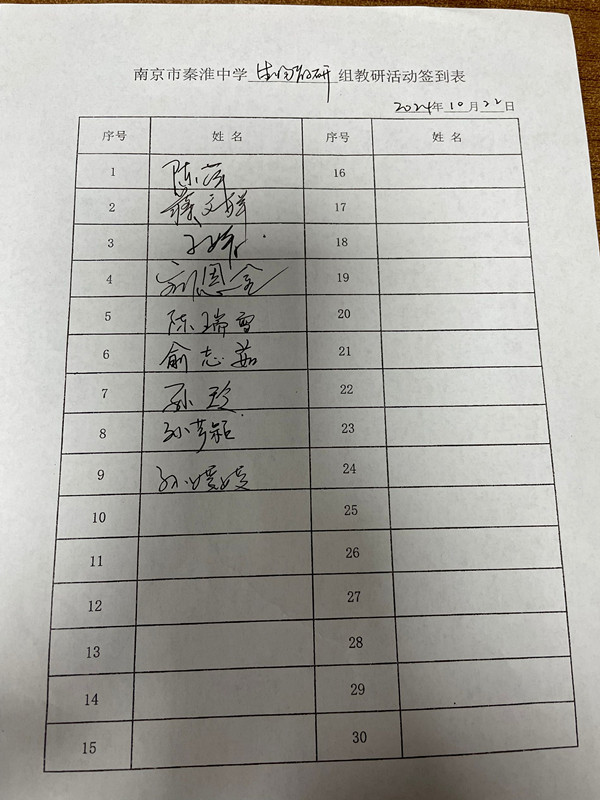 南京市秦淮中学 生物教研 组教研活动签到表
2024年10月22日
序号 姓名 序号 姓名
1 16
2 17
3 18
4 刘恩金 19
5 陈瑞雪 20
6 俞志茹 21
7 孙 23
8 孙梦颖 23
9 孙媛媛 24
10 25
11 26
12 27
13 28
14 29
15 30